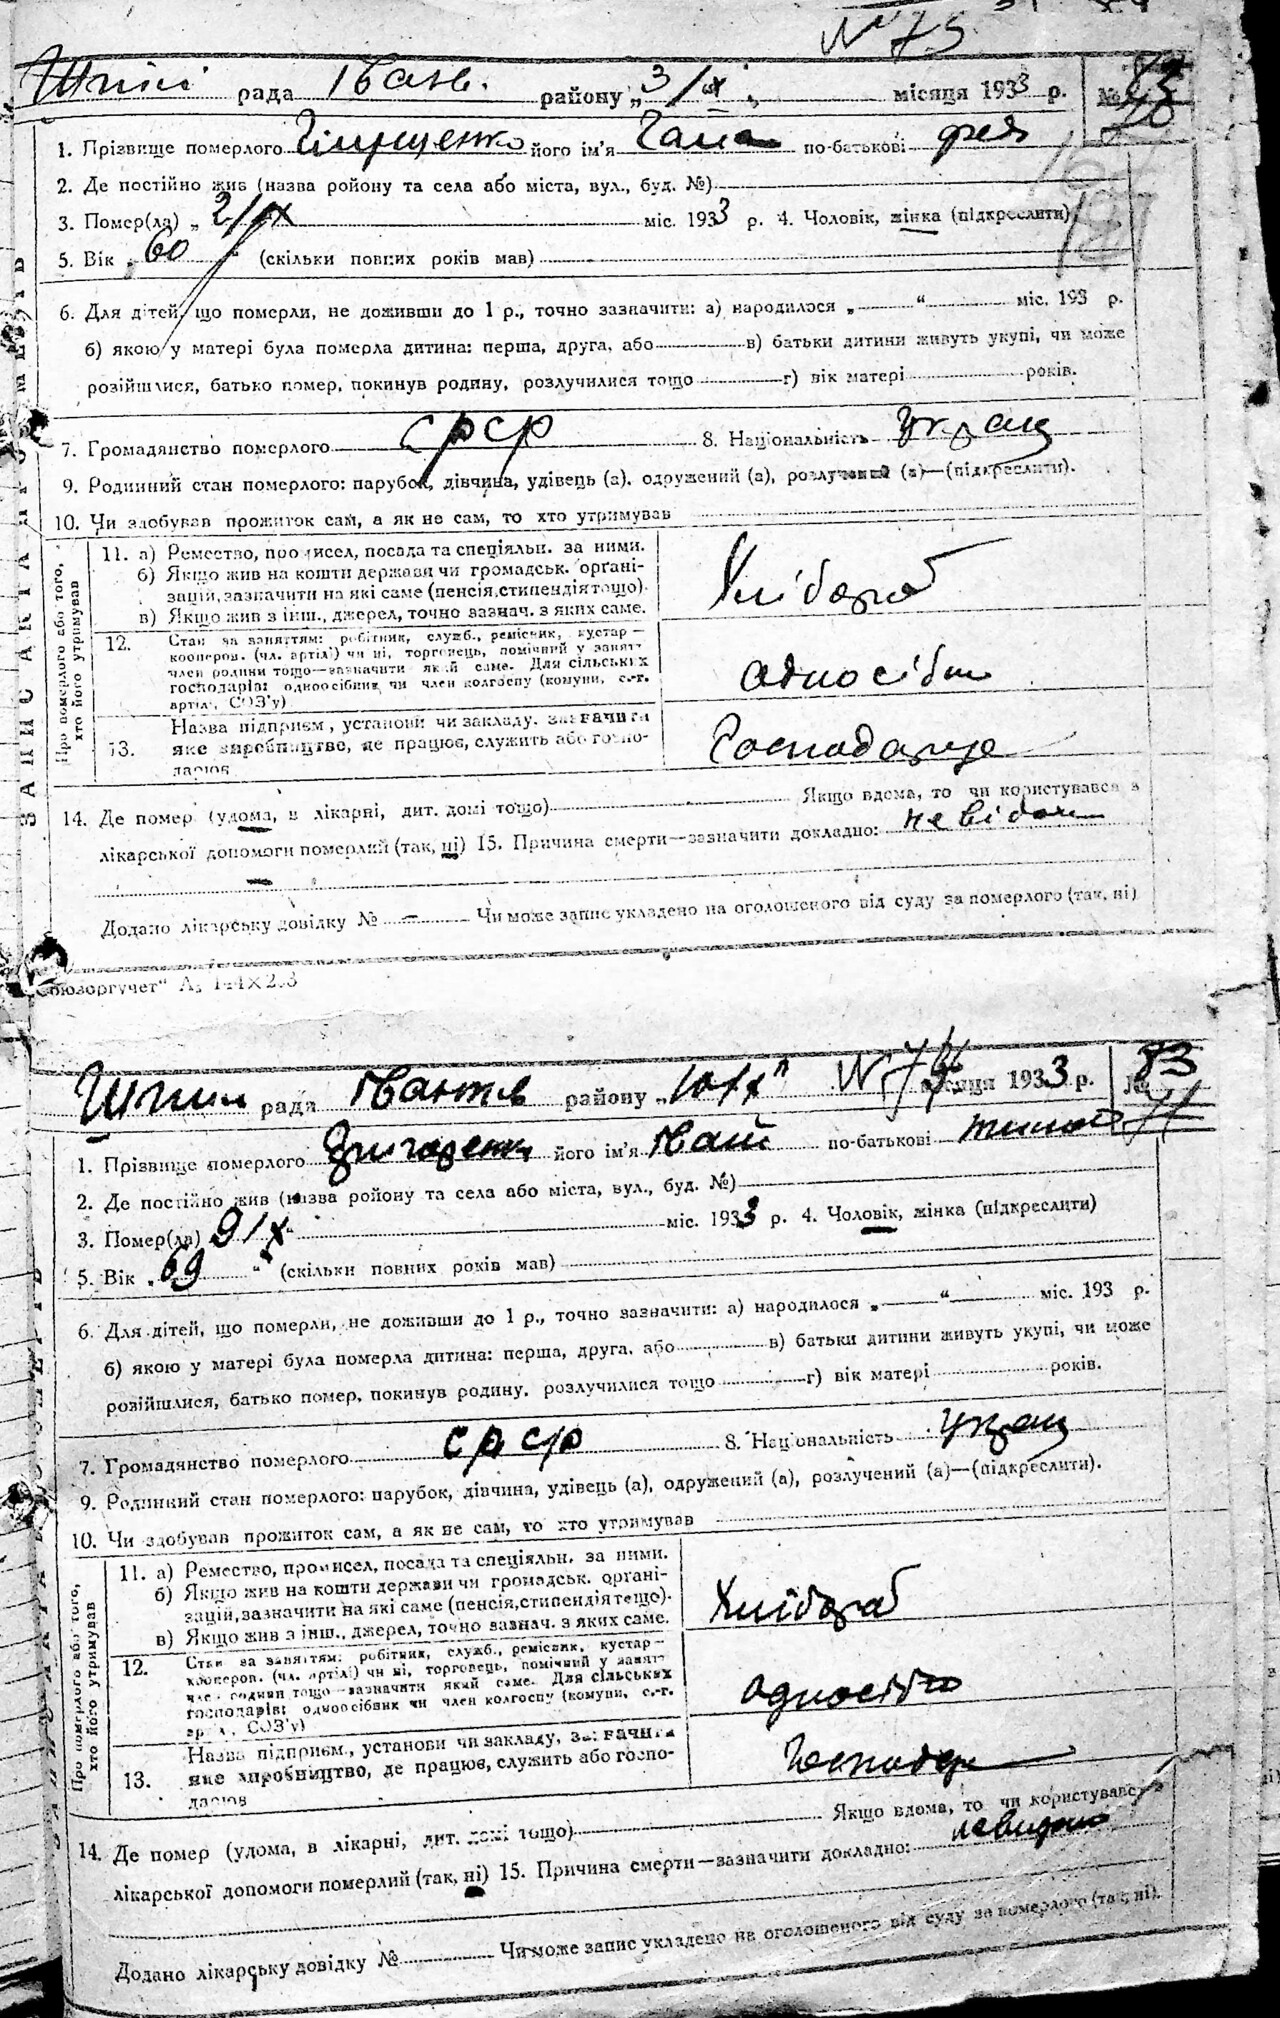 № 75
рада Іванк. району „3/IX“ місяця 1933 р. №
1. Прізвище померлого його ім'я по-батькові
2. Де постійно жив (назва ройону та села або міста, вул., буд. №)
3. Помер(ла) „2/IX міс. 1933 р. 4. Чоловік, жінка (підкреслити)
5. Вік „60“ (скільки повних років мав)
6. Для дітей, що померли, не доживши до 1 р., точно зазначити: а) народилося „ “ міс. 193 р.
б) якою у матері була померла дитина: перша, друга, або в) батьки дитини живуть укупі, чи може
розійшлися, батько помер, покинув родину, розлучилися тощо г) вік матері років.
7. Громадянство померлого СРСР 8. Національність украц
9. Родинний стан померлого: парубок, дівчина, удівець (а), одружений (а), розлучений (а)—(підкреслити).
10. Чи здобував прожиток сам, а як не сам, то хто утримував
Про померлого або того, хто його утримував
11. а) Ремество, промисел, посада та спеціяльн. за ними.
б) Якщо жив на кошти держави чи громадськ. орґані-
зацій, зазначити на які саме (пенсія, стипендія тощо).
в) Якщо жив з інш., джерел, точно зазнач. з яких саме.
Хлібороб
12. Стан за заняттям: робітник, служб., ремісник, кустар—
кооперов. (чл. артілі) чи ні, торговець, помічний у занят.
член родини тощо—зазначити який саме. Для сільських
господарів: одноосібник чи член колгоспу (комуни, с.-г.
артілі, СОЗ'у)
13. Назва підприєм., установи чи закладу, зазначити
яке виробництво, де працює, служить або госпо-
дарює
14. Де помер (удома, в лікарні, дит. домі тощо) Якщо вдома, то чи користувався з
лікарської допомоги померлий (так, ні) 15. Причина смерти—зазначити докладно:
Додано лікарську довідку № — Чи може запис укладено на оголошеного від суду за померлого (так, ні)
„Союзоргучет“
рада району „10/IX“ № 76 місяця 1933 р. № 83
1. Прізвище померлого його ім'я по-батькові
2. Де постійно жив (назва ройону та села або міста, вул., буд. №)
3. Помер(ла) 9/X міс. 1933 р. 4. Чоловік, жінка (підкреслити)
5. Вік „69“ (скільки повних років мав)
6. Для дітей, що померли, не доживши до 1 р., точно зазначити: а) народилося „ “ міс. 193 р.
б) якою у матері була померла дитина: перша, друга, або в) батьки дитини живуть укупі, чи може
розійшлися, батько помер, покинув родину, розлучилися тощо г) вік матері років.
7. Громадянство померлого СРСР 8. Національність украц
9. Родинний стан померлого: парубок, дівчина, удівець (а), одружений (а), розлучений (а)—(підкреслити).
10. Чи здобував прожиток сам, а як не сам, то хто утримував
Про померлого або того, хто його утримував
11. а) Ремество, промисел, посада та спеціяльн. за ними.
б) Якщо жив на кошти держави чи громадськ. орґані-
зацій, зазначити на які саме (пенсія, стипендія тощо).
в) Якщо жив з інш., джерел, точно зазнач. з яких саме.
Хлібороб
12. Стан за заняттям: робітник, служб., ремісник, кустар—
кооперов. (чл. артілі) чи ні, торговець, помічний у занят.
член родини тощо—зазначити який саме. Для сільських
господарів: одноосібник чи член колгоспу (комуни, с.-г.
артілі, СОЗ'у)
13. Назва підприєм., установи чи закладу, зазначити
яке виробництво, де працює, служить або госпо-
дарює
14. Де помер (удома, в лікарні, дит. домі тощо) Якщо вдома, то чи користувався з
лікарської допомоги померлий (так, ні) 15. Причина смерти—зазначити докладно:
Додано лікарську довідку № Чи може запис укладено на оголошеного від суду за померлого (так, ні).